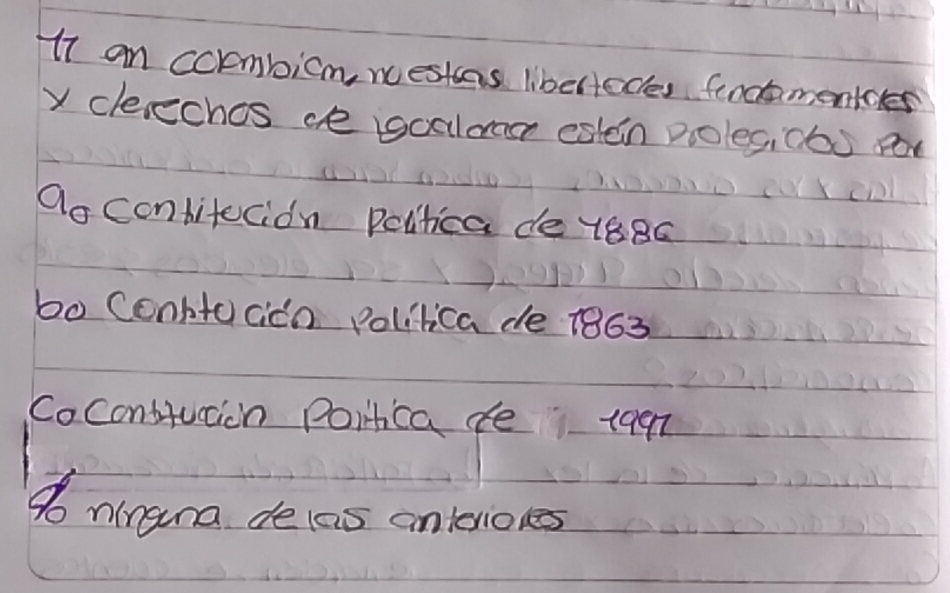 11 en colombia, nuestras libertades fundamentales
y derechos de igualdad estén protegidos por
a. contitución política de 1886
b. Contitución política de 1863
c. Contitución Política de 1991
d. ninguna de las anteriores